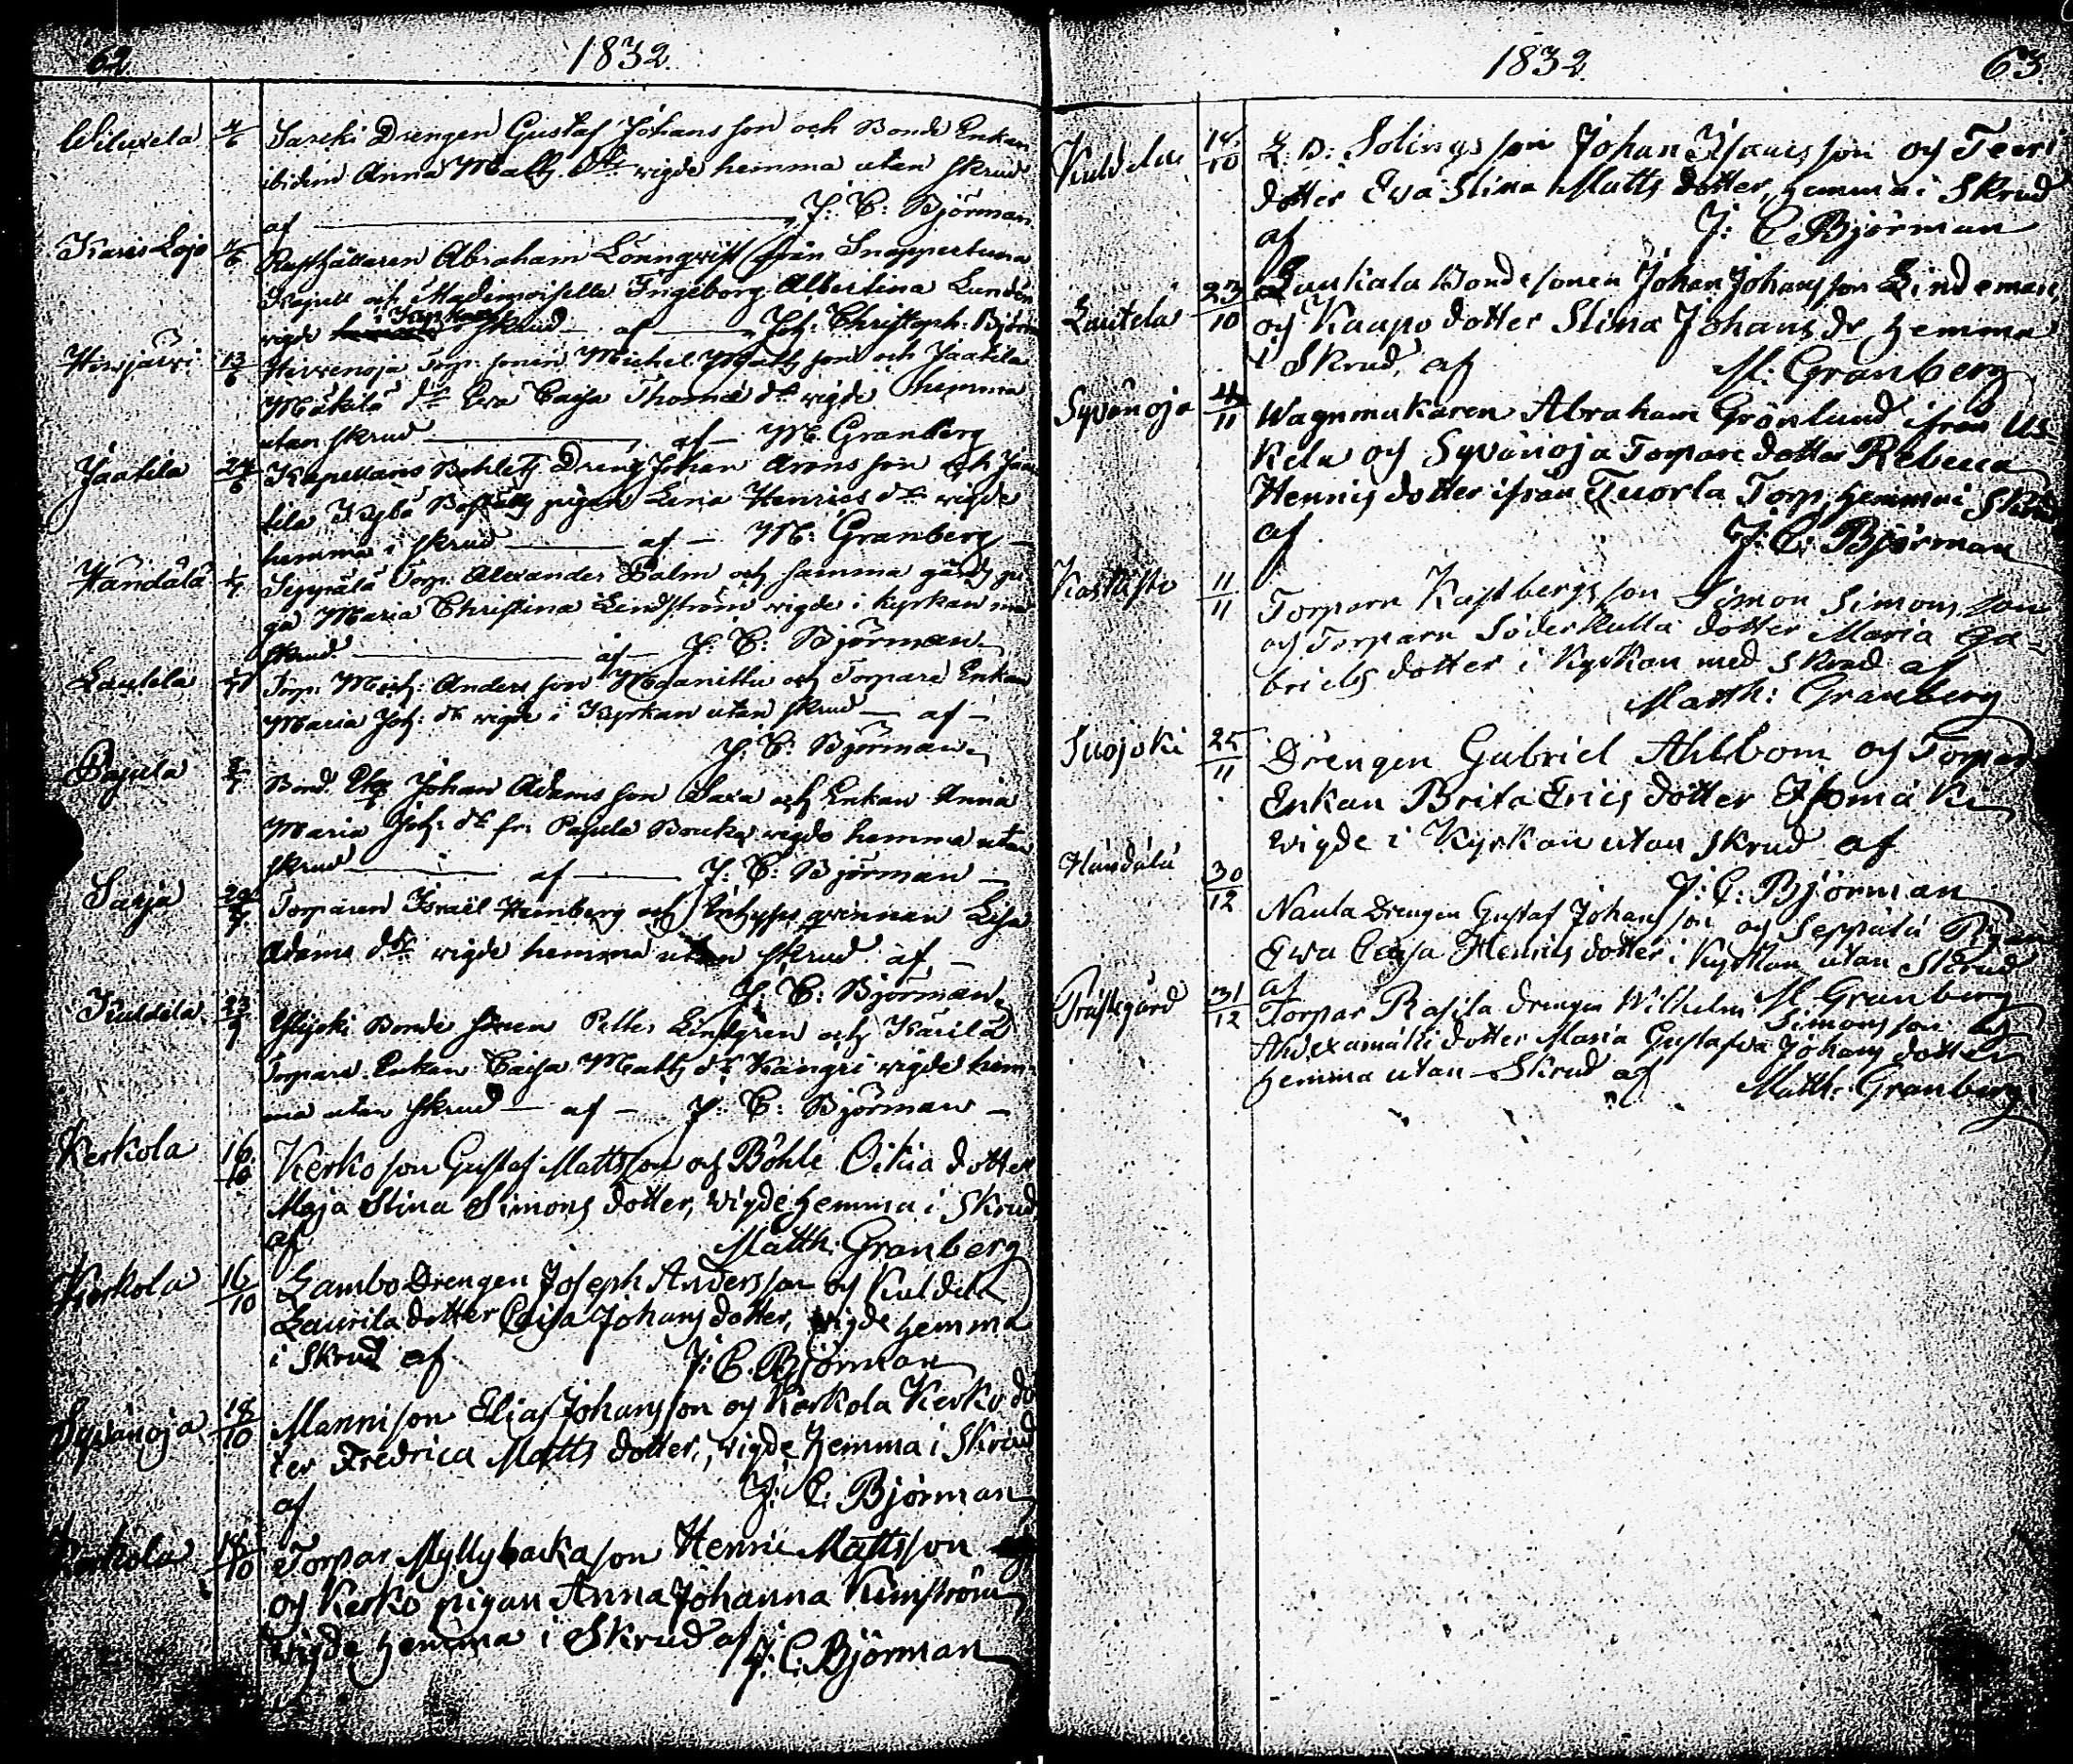 62.
1832.
Wiluxela 4/6 Sareki Drengen Gustaf Johans son och Bonde Enkan
ibidem Anna Matts dr wigde hemma utan skrud
af J: C: Björman.
Karis Lojo 7/6 Rusthållaren Abraham Lönnqvist från Snappertuna
Kapell och Mademoiselle Ingeborg Albertina Lundén
wigde i skrud af Joh: Christoph: Björm
Hirsjärvi 13/6 Hirvenoja Torp. sonen Michel Matts son och Jaatila
Mäkilä dr Eva Caisa Thomæ dr wigde hemma
utan skrud af M. Granberg
Jaatila 24/6 Kapellans Dreng Johan Arons son och Jaa
tila Kylä pigan Lena Henrics dr wigde
hemma i skrud af M: Granberg
Händälä Seppälä Torp. Alexander Palm och samma gårds pi
ga Maria Christina Lindström wigde i kyrkan med
skrud af J: C: Björman
Lautela Torp. Mich: Anders son och Torpare Enkan
Maria Joh: dr wigde i Kyrkan utan skrud af
J: C: Björman
Pajula Bond. Johan Adams son Saxa och Enkan Anna
Maria Joh: dr fr. Pajula wigde hemma utan
skrud af J: C: Björman
Sarja Torparen Israël Hemberg och qvinnan Lisa
Adams dr wigde hemma utan skrud af
J: C: Björman
Kuldela 23/9 Ylijoki Bonde sonen Petter Lindgren och Karila
Torpare Enkan Caisa Matts dr Kangri wigde hem
ma utan skrud af J: C: Björman
Kerkola 16/10 Kerko son Gustaf Mattsson och Böhle Oikia dotter
Maja Stina Simons dotter, wigde hemma i Skrud
af Matth: Granberg
Kerkola 16/10 Lambo Drengen Joseph Andersson och Kuldela
Laurila dotter Caisa Johans dotter, wigde hemma
i Skrud af J: C. Björman
Syvänoja 18/10 Manni son Elias Johansson och Kerkola Kerko dot
ter Fredrica Matts dotter, wigde hemma i Skrud
af J: C: Björman
Kerkola 18/10 Torpar Myllybacka son Henric Mattsson
och Kerko pigan Anna Johanna Kumström
wigde hemma i Skrud af J: C: Björman
1832.
63.
Kuldela 18/10 L: B: Solings son Johan Isaacs son och Teeri
dotter Ewa Stina Matts dotter, hemma i Skrud
af J: C. Björman
Lautela 23/10 Lautiala Bondesonen Johan Johans son Lindeman,
och Kaapo dotter Stina Johans dr hemma
i Skrud, af M: Granberg
Syvänoja Wagnmakaren Abraham Grönlund ifrån Us-
kela och Syvänoja Torpare dotter Rebecca
Henrics dotter ifrån Tuorla Torp, hemma i Skrud
af J: C: Björman
Koskisto 11/11 Torparn Kastbergs son Simon Simons son
och Torparn Söderkulla dotter Maria Ga-
briels dotter i Kyrkan med Skrud af
Matth: Granberg
Suojoki 25/11 Drengen Gabriel Ahlbom och Torpar
Enkan Brita Erics dotter Isomäki
wigde i Kyrkan utan skrud af
J: C: Björman
Händälä 30/12 Naula Drengen Gustaf Johans son och Seppälä Pigan
Ewa Caisa Henrics dotter i Kyrkan utan Skrud
af M Granberg
Prästgård 31/12 Torpar Rasila Drengen Wilhelm Simons son och
dotter Maria Gustafva Johans dotter
hemma utan Skrud af Matth: Granberg